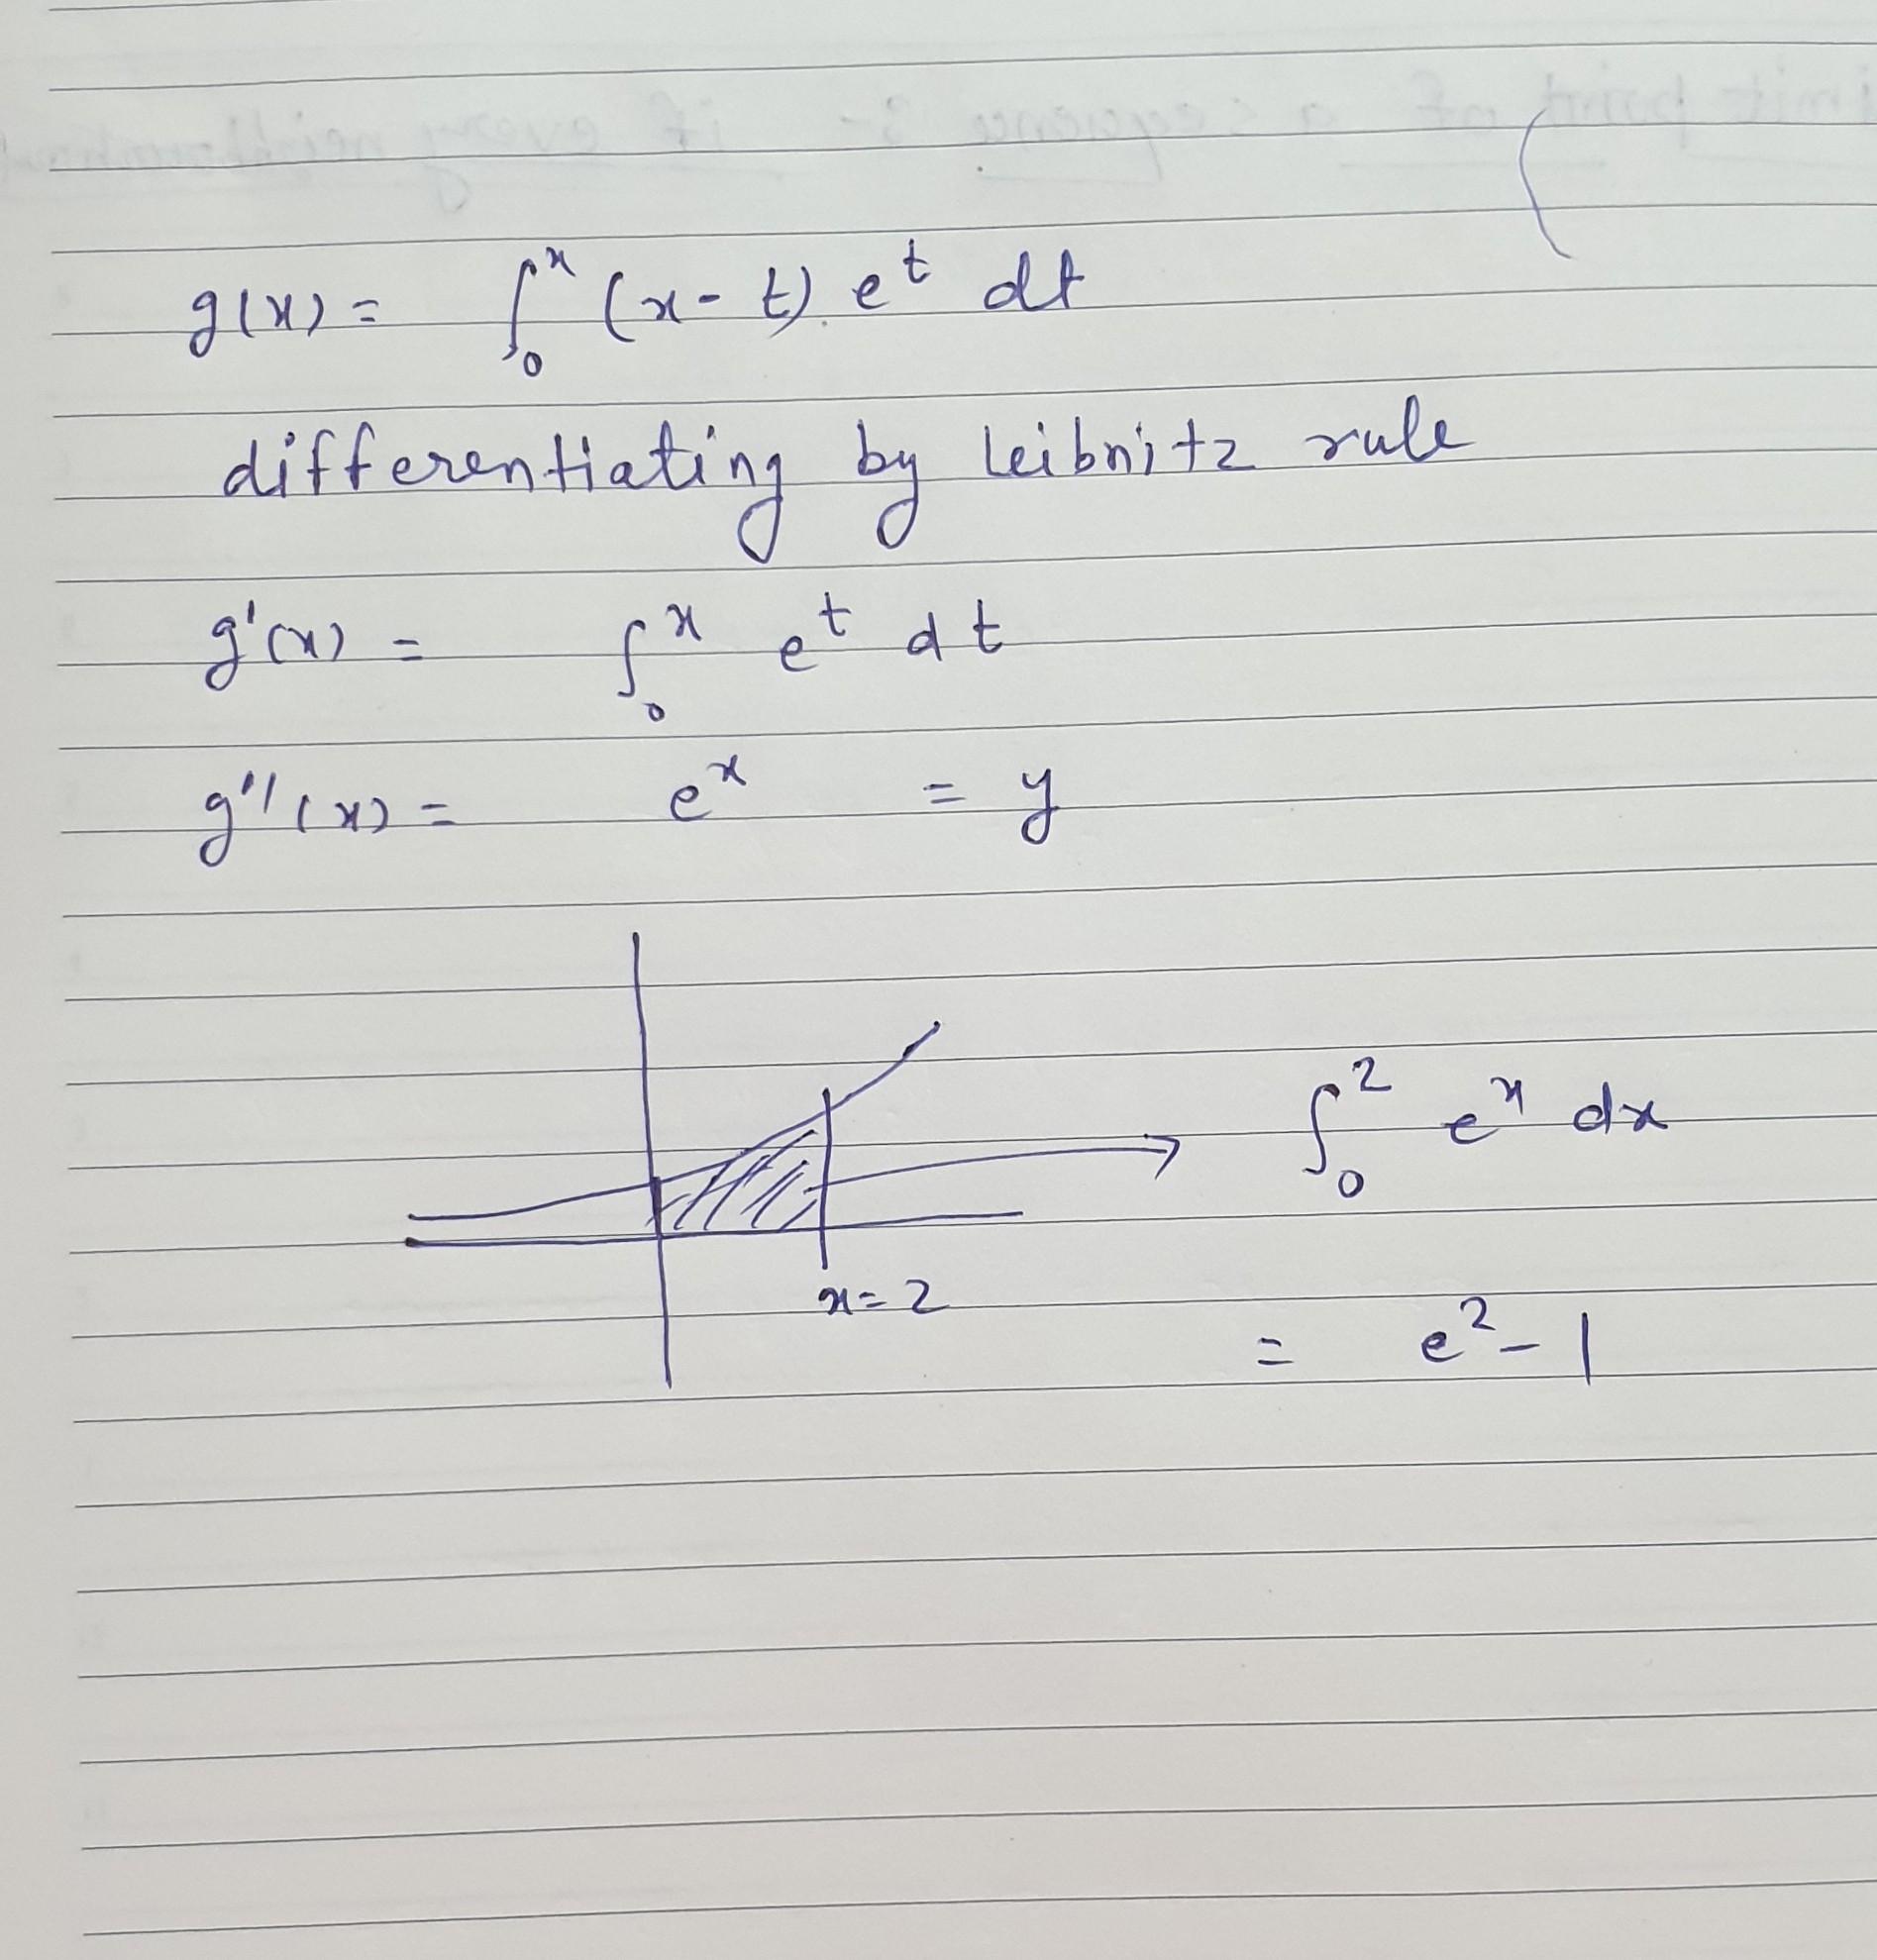 g(x) = ∫₀ˣ (x - t) eᵗ dt
differentiating by Leibnitz rule
g'(x) = ∫₀ˣ eᵗ dt
g''(x) = eˣ = y
∫₀² eˣ dx
x = 2
= e² - 1